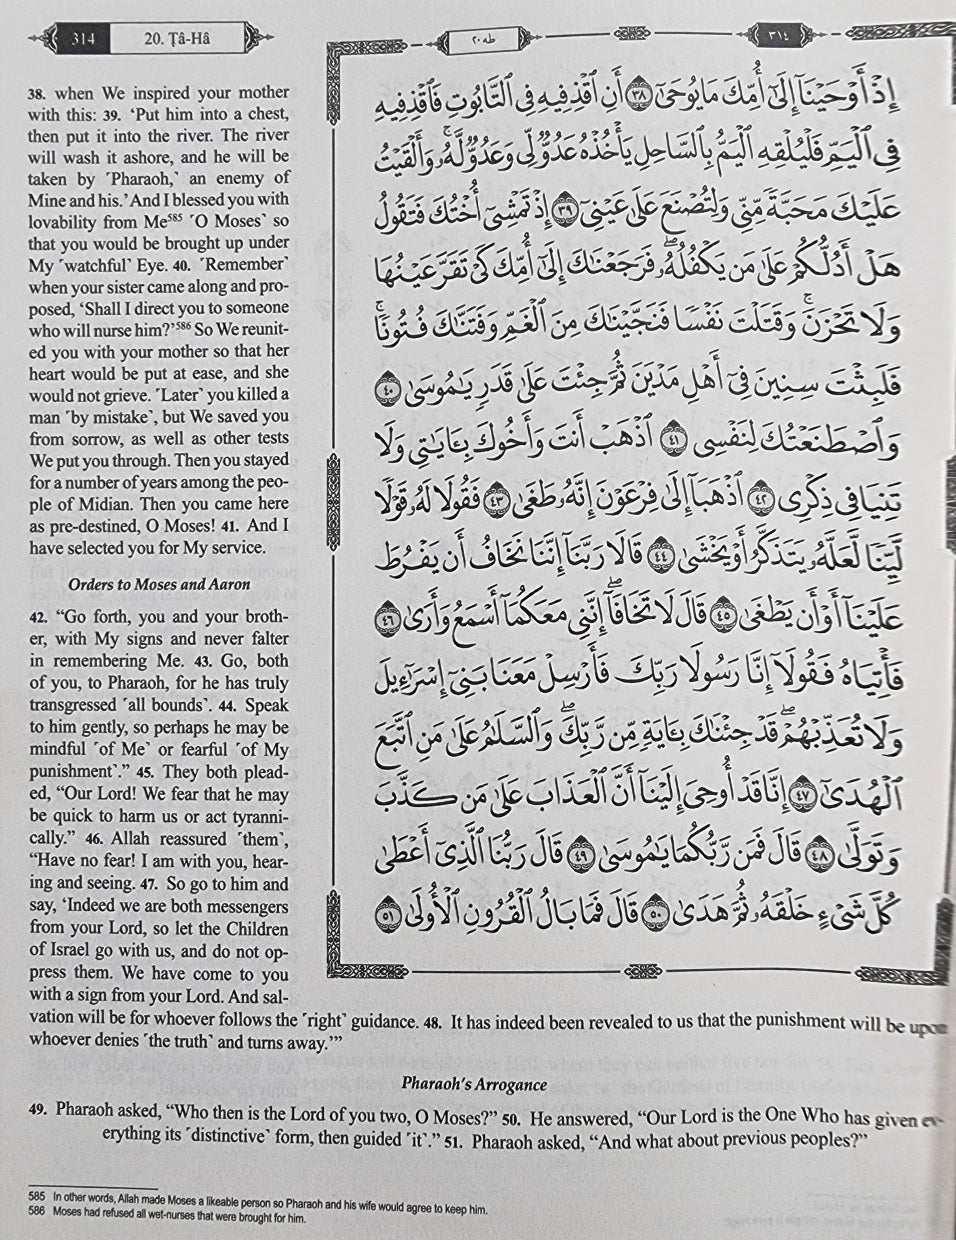 314
20. Ṭâ-Hâ
طه ٢٠
٣١٤
38. when We inspired your mother
with this: 39. ‘Put him into a chest,
then put it into the river. The river
will wash it ashore, and he will be
taken by ˹Pharaoh,˺ an enemy of
Mine and his.’ And I blessed you with
lovability from Me585 ˹O Moses˺ so
that you would be brought up under
My ˹watchful˺ Eye. 40. ˹Remember˺
when your sister came along and pro-
posed, ‘Shall I direct you to someone
who will nurse him?’586 So We reunit-
ed you with your mother so that her
heart would be put at ease, and she
would not grieve. ˹Later˺ you killed a
man ˹by mistake˺, but We saved you
from sorrow, as well as other tests
We put you through. Then you stayed
for a number of years among the peo-
ple of Midian. Then you came here
as pre-destined, O Moses! 41. And I
have selected you for My service.
Orders to Moses and Aaron
42. “Go forth, you and your broth-
er, with My signs and never falter
in remembering Me. 43. Go, both
of you, to Pharaoh, for he has truly
transgressed ˹all bounds˺. 44. Speak
to him gently, so perhaps he may be
mindful ˹of Me˺ or fearful ˹of My
punishment˺.” 45. They both plead-
ed, “Our Lord! We fear that he may
be quick to harm us or act tyranni-
cally.” 46. Allah reassured ˹them˺,
“Have no fear! I am with you, hear-
ing and seeing. 47. So go to him and
say, ‘Indeed we are both messengers
from your Lord, so let the Children
of Israel go with us, and do not op-
press them. We have come to you
with a sign from your Lord. And sal-
vation will be for whoever follows the ˹right˺ guidance. 48. It has indeed been revealed to us that the punishment will be upon
whoever denies ˹the truth˺ and turns away.’”
إِذْ أَوْحَيْنَآ إِلَىٰٓ أُمِّكَ مَا يُوحَىٰٓ ٣٨ أَنِ ٱقْذِفِيهِ فِى ٱلتَّابُوتِ فَٱقْذِفِيهِ
فِى ٱلْيَمِّ فَلْيُلْقِهِ ٱلْيَمُّ بِٱلسَّاحِلِ يَأْخُذْهُ عَدُوٌّ لِّى وَعَدُوٌّ لَّهُۥ ۚ وَأَلْقَيْتُ
عَلَيْكَ مَحَبَّةً مِّنِّى وَلِتُصْنَعَ عَلَىٰ عَيْنِىٓ ٣٩ إِذْ تَمْشِىٓ أُخْتُكَ فَتَقُولُ
هَلْ أَدُلُّكُمْ عَلَىٰ مَن يَكْفُلُهُۥ ۖ فَرَجَعْنَـٰكَ إِلَىٰٓ أُمِّكَ كَىْ تَقَرَّ عَيْنُهَا
وَلَا تَحْزَنَ ۚ وَقَتَلْتَ نَفْسًا فَنَجَّيْنَـٰكَ مِنَ ٱلْغَمِّ وَفَتَنَّـٰكَ فُتُونًا ۚ
فَلَبِثْتَ سِنِينَ فِىٓ أَهْلِ مَدْيَنَ ثُمَّ جِئْتَ عَلَىٰ قَدَرٍ يَـٰمُوسَىٰ ٤٠
وَٱصْطَنَعْتُكَ لِنَفْسِى ٤١ ٱذْهَبْ أَنتَ وَأَخُوكَ بِـَٔايَـٰتِى وَلَا
تَنِيَا فِى ذِكْرِى ٤٢ ٱذْهَبَآ إِلَىٰ فِرْعَوْنَ إِنَّهُۥ طَغَىٰ ٤٣ فَقُولَا لَهُۥ قَوْلًا
لَّيِّنًا لَّعَلَّهُۥ يَتَذَكَّرُ أَوْ يَخْشَىٰ ٤٤ قَالَا رَبَّنَآ إِنَّنَا نَخَافُ أَن يَفْرُطَ
عَلَيْنَآ أَوْ أَن يَطْغَىٰ ٤٥ قَالَ لَا تَخَافَآ ۖ إِنَّنِى مَعَكُمَآ أَسْمَعُ وَأَرَىٰ ٤٦
فَأْتِيَاهُ فَقُولَآ إِنَّا رَسُولَا رَبِّكَ فَأَرْسِلْ مَعَنَا بَنِىٓ إِسْرَٰٓءِيلَ
وَلَا تُعَذِّبْهُمْ ۖ قَدْ جِئْنَـٰكَ بِـَٔايَةٍ مِّن رَّبِّكَ ۖ وَٱلسَّلَـٰمُ عَلَىٰ مَنِ ٱتَّبَعَ
ٱلْهُدَىٰٓ ٤٧ إِنَّا قَدْ أُوحِىَ إِلَيْنَآ أَنَّ ٱلْعَذَابَ عَلَىٰ مَن كَذَّبَ
وَتَوَلَّىٰ ٤٨ قَالَ فَمَن رَّبُّكُمَا يَـٰمُوسَىٰ ٤٩ قَالَ رَبُّنَا ٱلَّذِىٓ أَعْطَىٰ
كُلَّ شَىْءٍ خَلْقَهُۥ ثُمَّ هَدَىٰ ٥٠ قَالَ فَمَا بَالُ ٱلْقُرُونِ ٱلْأُولَىٰ ٥١
Pharaoh’s Arrogance
49. Pharaoh asked, “Who then is the Lord of you two, O Moses?” 50. He answered, “Our Lord is the One Who has given ev-
erything its ˹distinctive˺ form, then guided ˹it˺.” 51. Pharaoh asked, “And what about previous peoples?”
585 In other words, Allah made Moses a likeable person so Pharaoh and his wife would agree to keep him.
586 Moses had refused all wet-nurses that were brought for him.